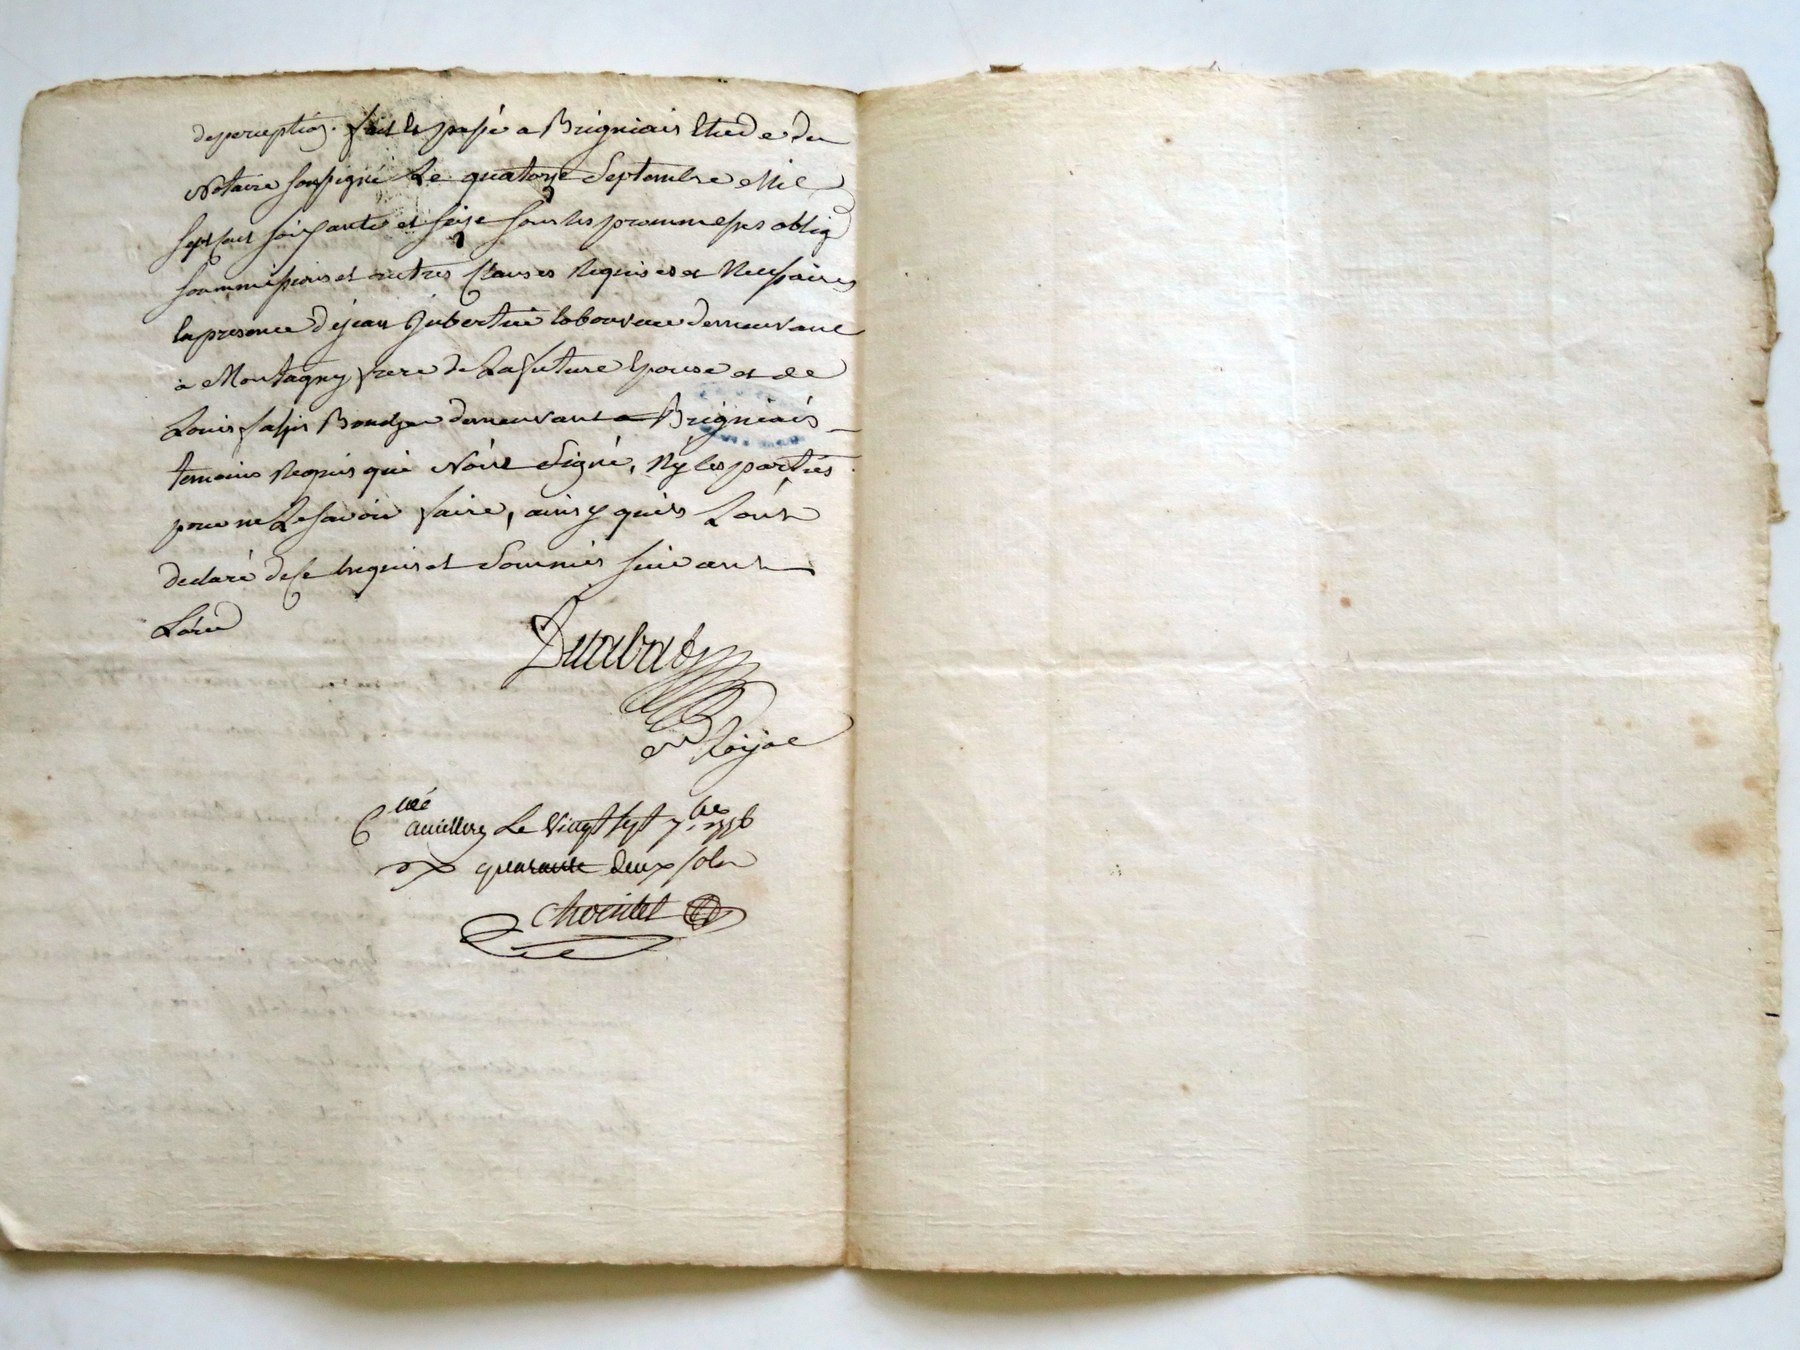 desperception. fait et passé a Brigniais Etude du
Notaire soussigné Le quatorze Septembre Mil
sept cent soixante et seize sous les prommesses oblig
soummissions et autres Clauses Requises et Necessaires
En presence de jean laboureur demeurant
a Montagny frere de La future Epouse et de
Louis demeurant a Brigniais
temoins Requis qui N'ont Signé, Ny les parties
pour ne Le savoir faire, ainsy quils L'ont
declaré de Ce Enquis et Sommés suivant
L'ord
Royal
Cllé Le Vingt sept 7bre 1776
quarante deux sols